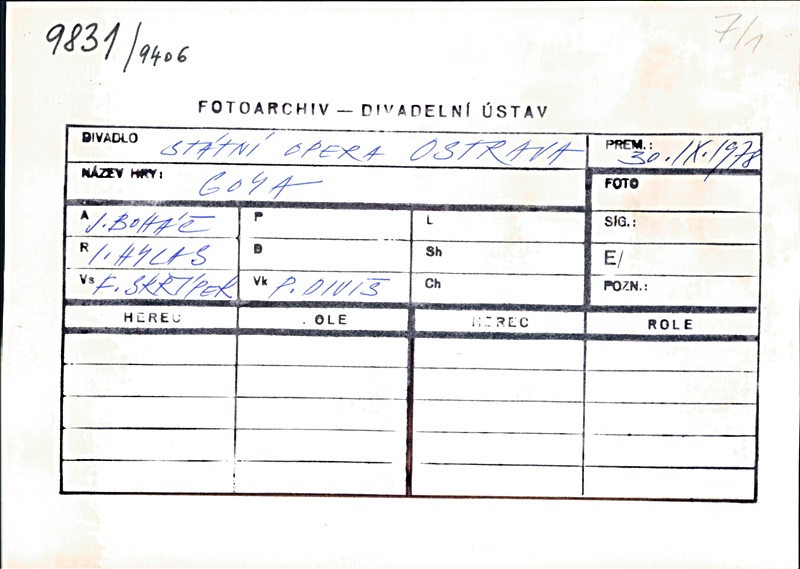 9831/9406
7/1
FOTOARCHIV — DIVADELNÍ ÚSTAV
DIVADLO STÁTNÍ OPERA OSTRAVA PREM.: 30.IX.1978
NÁZEV HRY: GOYA FOTO
A J. BOHÁČ P L SIG.:
R I. HYLAS D Sh E/
Vs F. SKŘÍPEK Vk P. DIVIŠ Ch POZN.:
HEREC OLE HEREC ROLE